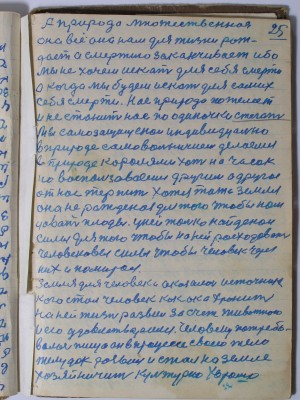 25
А природа множественная
она всё она нам для жизни рож-
дает а смертию заканчивает ибо
мы не хочем искать для себя смерти
а когда мы будем искать для самих
себя смерти. Нас природа пожалеет
и не станит нас по одиночки стегать
Мы самозащитной индивидуально
в природе самовольничием делаемся
в природе королями хоть на часок
но воспользоваться другим а другая
от нас терпит Хочет та земля
она не рождена для того чтобы нам
давать плоды. у ней только найденой
силы для того чтобы на ней расходовать
человековы силы чтобы человек через
них и помирал.
Земля для человека оказалась источник
кого стал человек как око хранить
на ней жизнь развил за счет животного
и его удовлетворения. Человеку потребо-
валося пища он в процессе своей тело
желудок развил и стал на земле
хозяйничить культурно хорошо